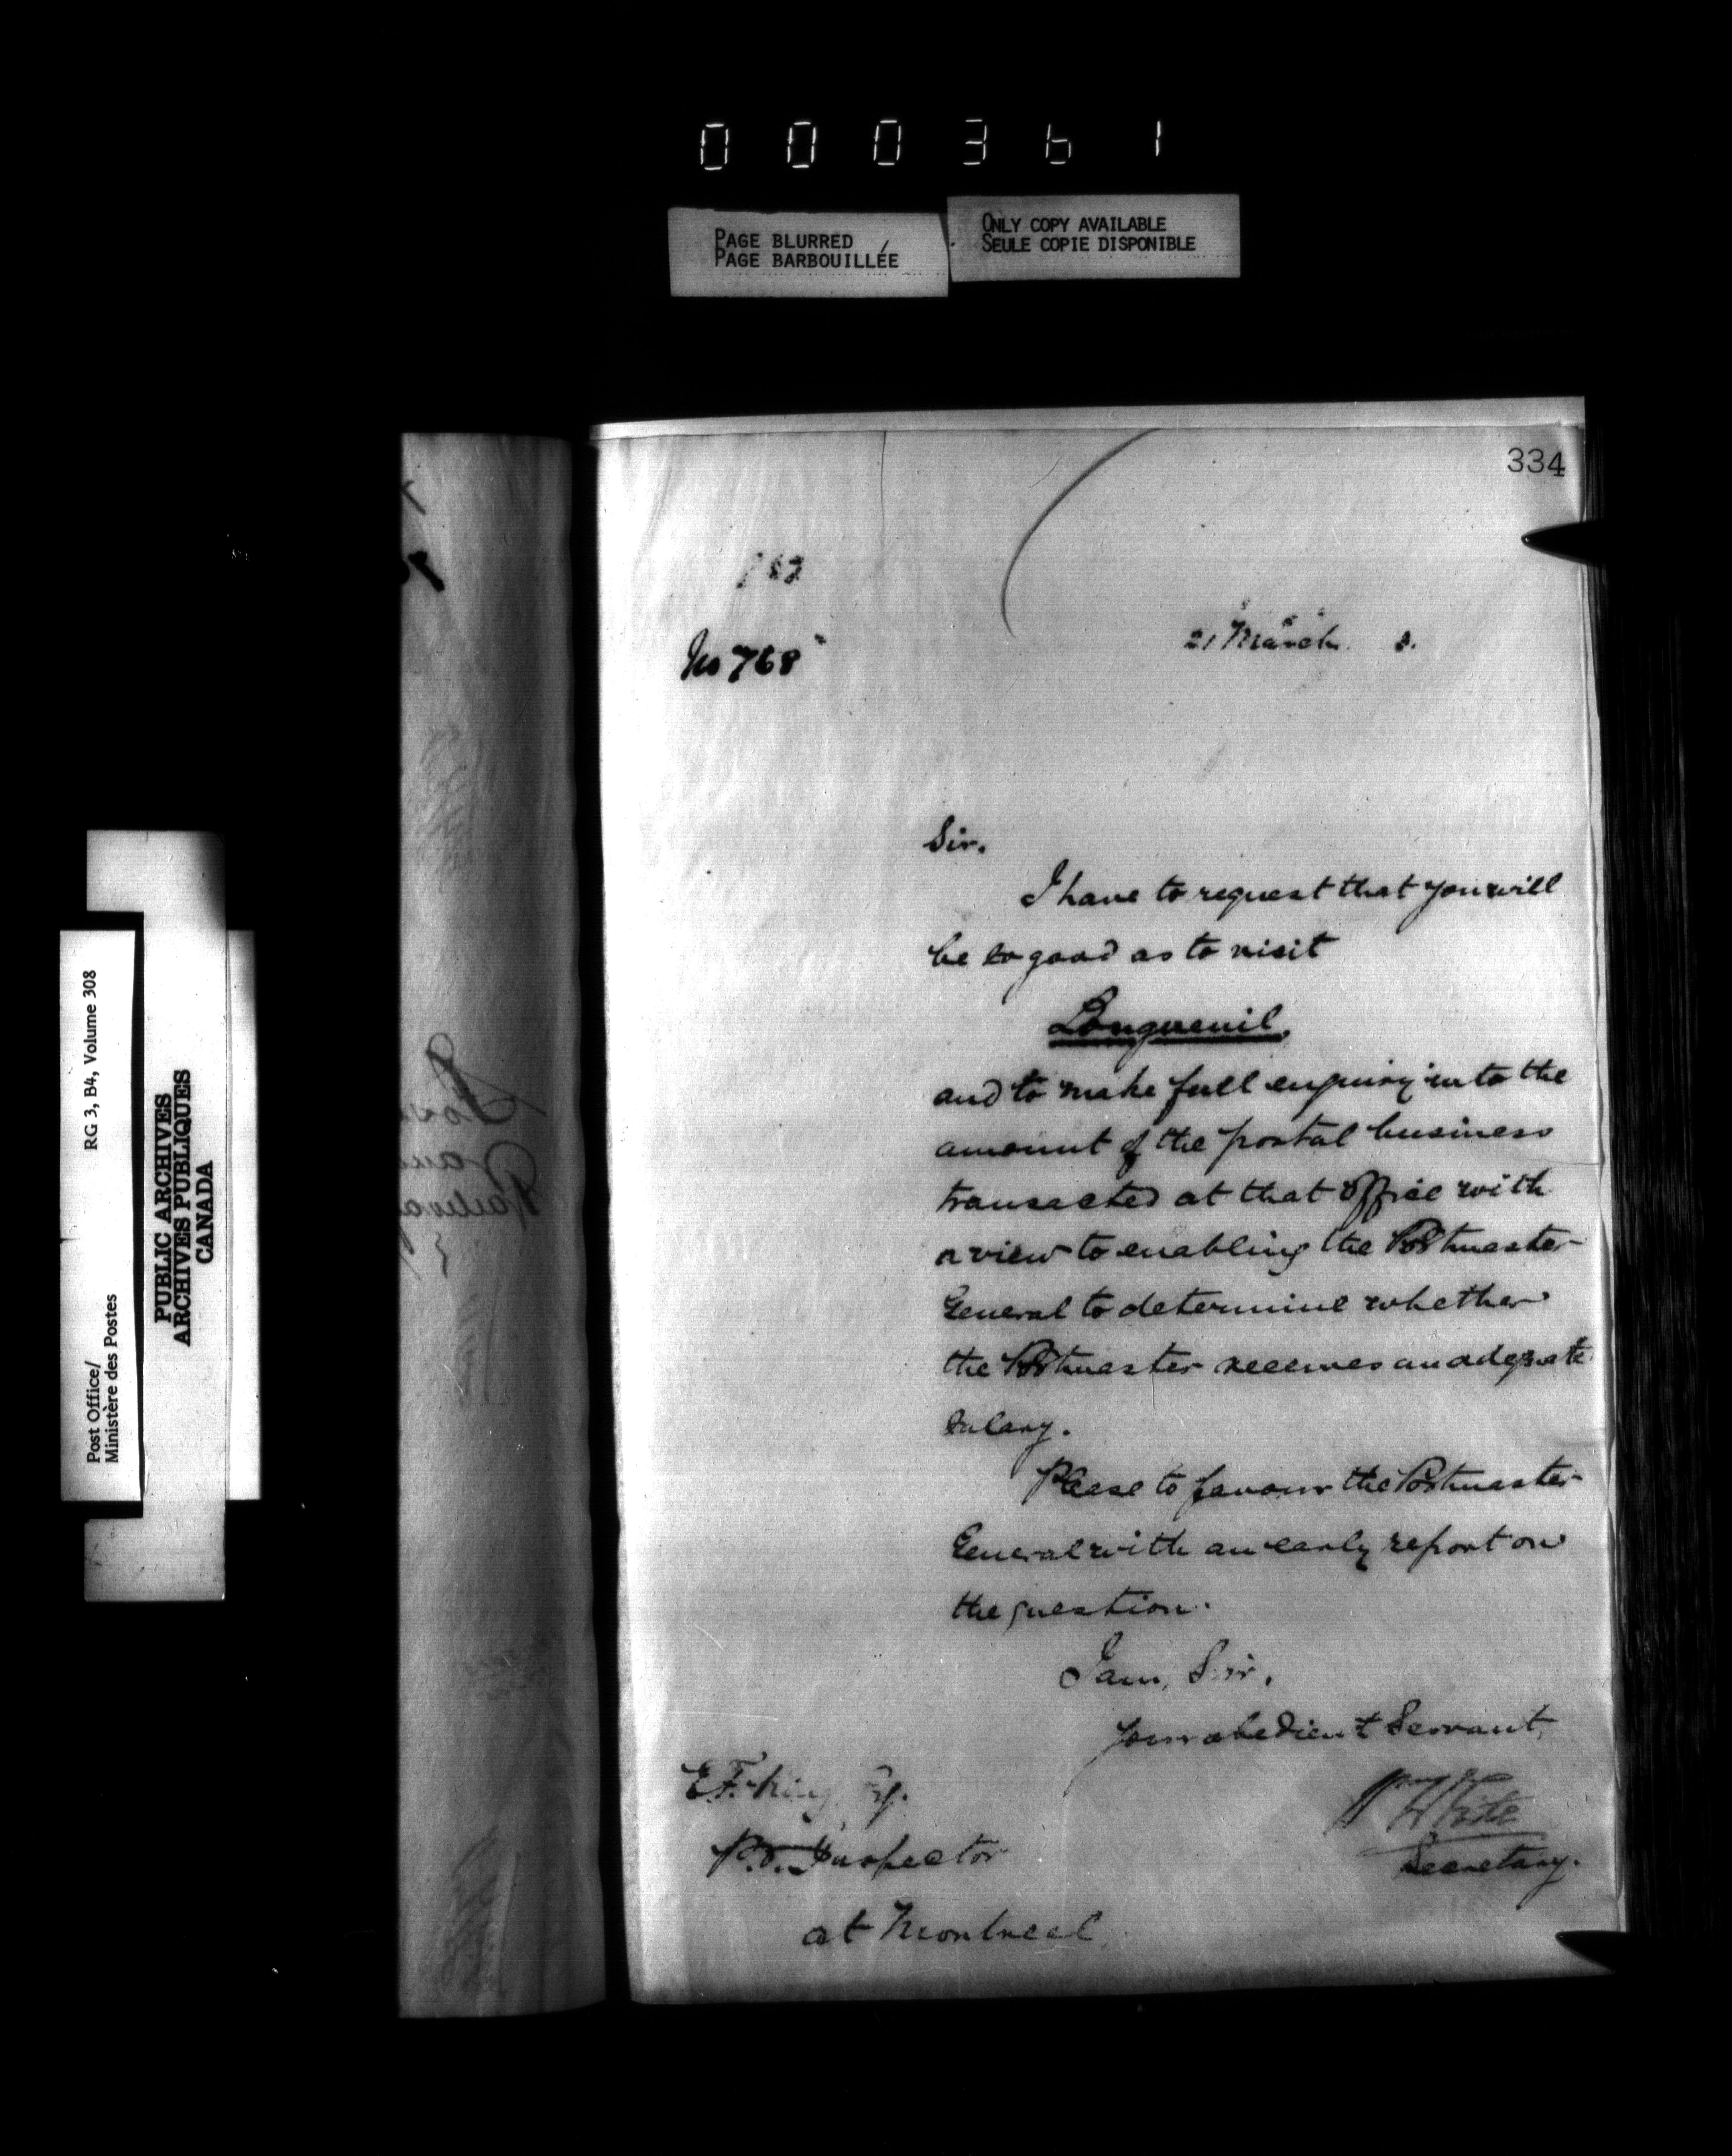 000361
PAGE BLURRED
PAGE BARBOUILLÉE
ONLY COPY AVAILABLE
SEULE COPIE DISPONIBLE
334
No 768
21 March 8.
Sir.
I have to request that you will
be so good as to visit
Longueuil,
and to make full enquiry into the
amount of the postal business
transacted at that office with
a view to enabling the Postmaster
General to determine whether
the Postmaster receives an adequate
salary.
Please to favour the Postmaster
General with an early report on
the question.
I am, Sir,
Your obedient Servant,
White
Secretary.
E.F. King Esq.
P.O. Inspector
at Montreal
Post Office/
Ministère des Postes
RG 3, B4, Volume 308
PUBLIC ARCHIVES
ARCHIVES PUBLIQUES
CANADA